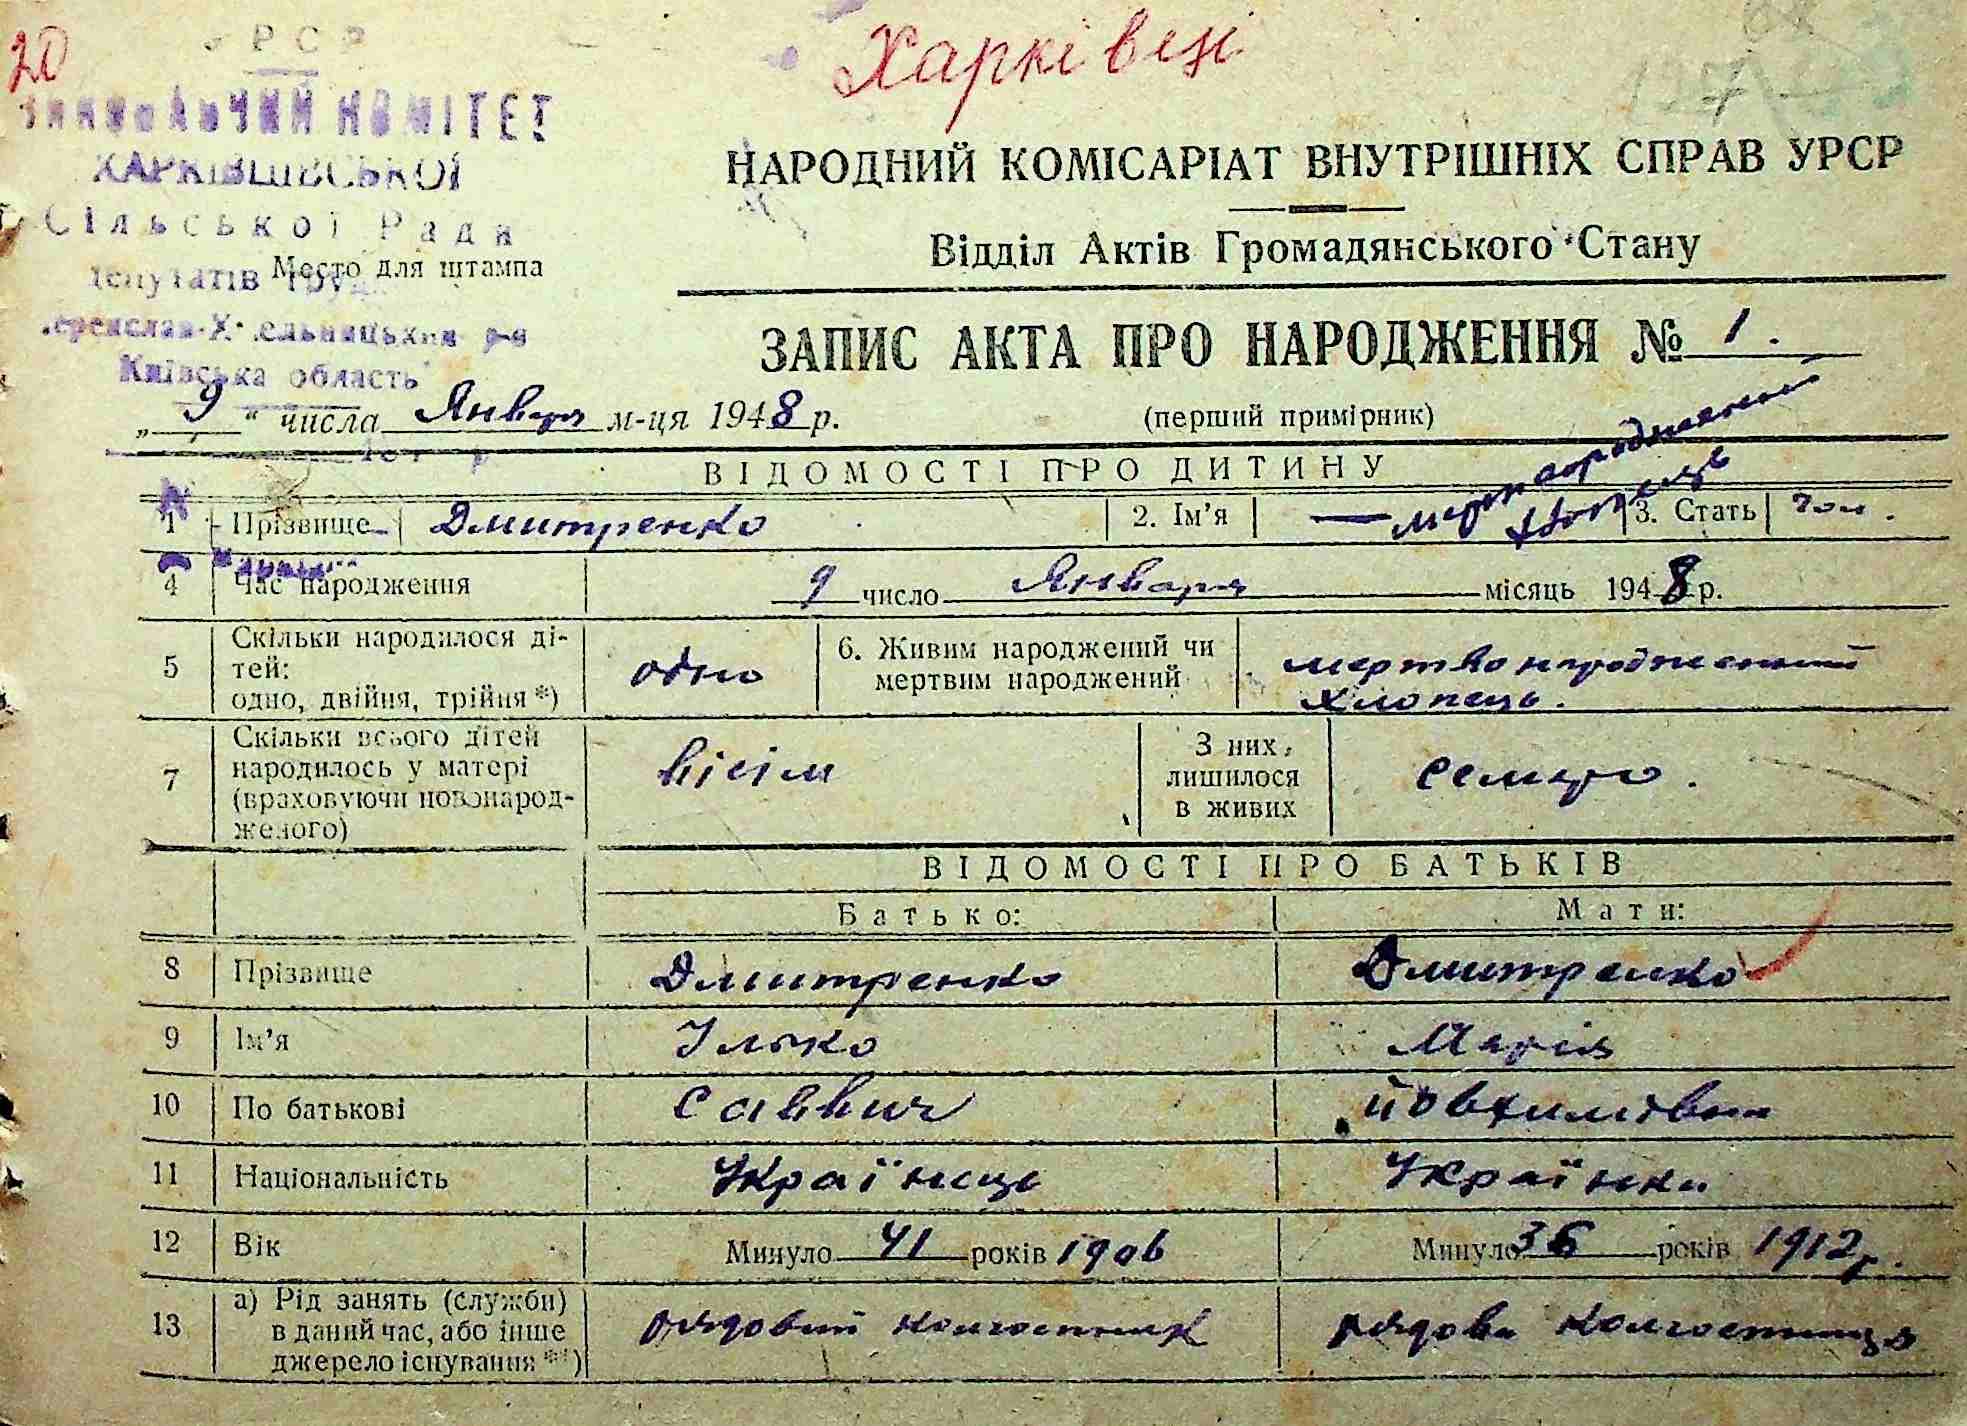 20
Харківці
УРСР
ВИКОНАВЧИЙ КОМІТЕТ
ХАРКІВЦІВСЬКОЇ
Сільської Ради
депутатів труд.
Переяслав-Хмельницький р-н
Київська область
Место для штампа
НАРОДНИЙ КОМІСАРІАТ ВНУТРІШНІХ СПРАВ УРСР
Відділ Актів Громадянського Стану
ЗАПИС АКТА ПРО НАРОДЖЕННЯ № 1.
„9“ числа Января м-ця 1948 р.
(перший примірник)
ВІДОМОСТІ ПРО ДИТИНУ
1 Прізвище Дмитренко 2. Ім’я — мертвонароджений хлопець 3. Стать чол.
4 Час народження 9 число Января місяць 1948 р.
5 Скільки народилося ді-
тей:
одно, двійня, трійня *) одно 6. Живим народжений чи
мертвим народжений мертво народжений
хлопець.
7 Скільки всього дітей
народилось у матері
(враховуючи новонарод-
женого) вісім З них
лишилося
в живих семеро.
ВІДОМОСТІ ПРО БАТЬКІВ
Батько: Мати:
8 Прізвище Дмитренко Дмитренко
9 Ім’я Ілько Марія
10 По батькові Саввич Йовхимівна
11 Національність Українець Українка
12 Вік Минуло 41 років 1906 Минуло 36 років 1912 р.
13 а) Рід занять (служби)
в даний час, або інше
джерело існування **) рядовий колгоспник рядова колгоспниця